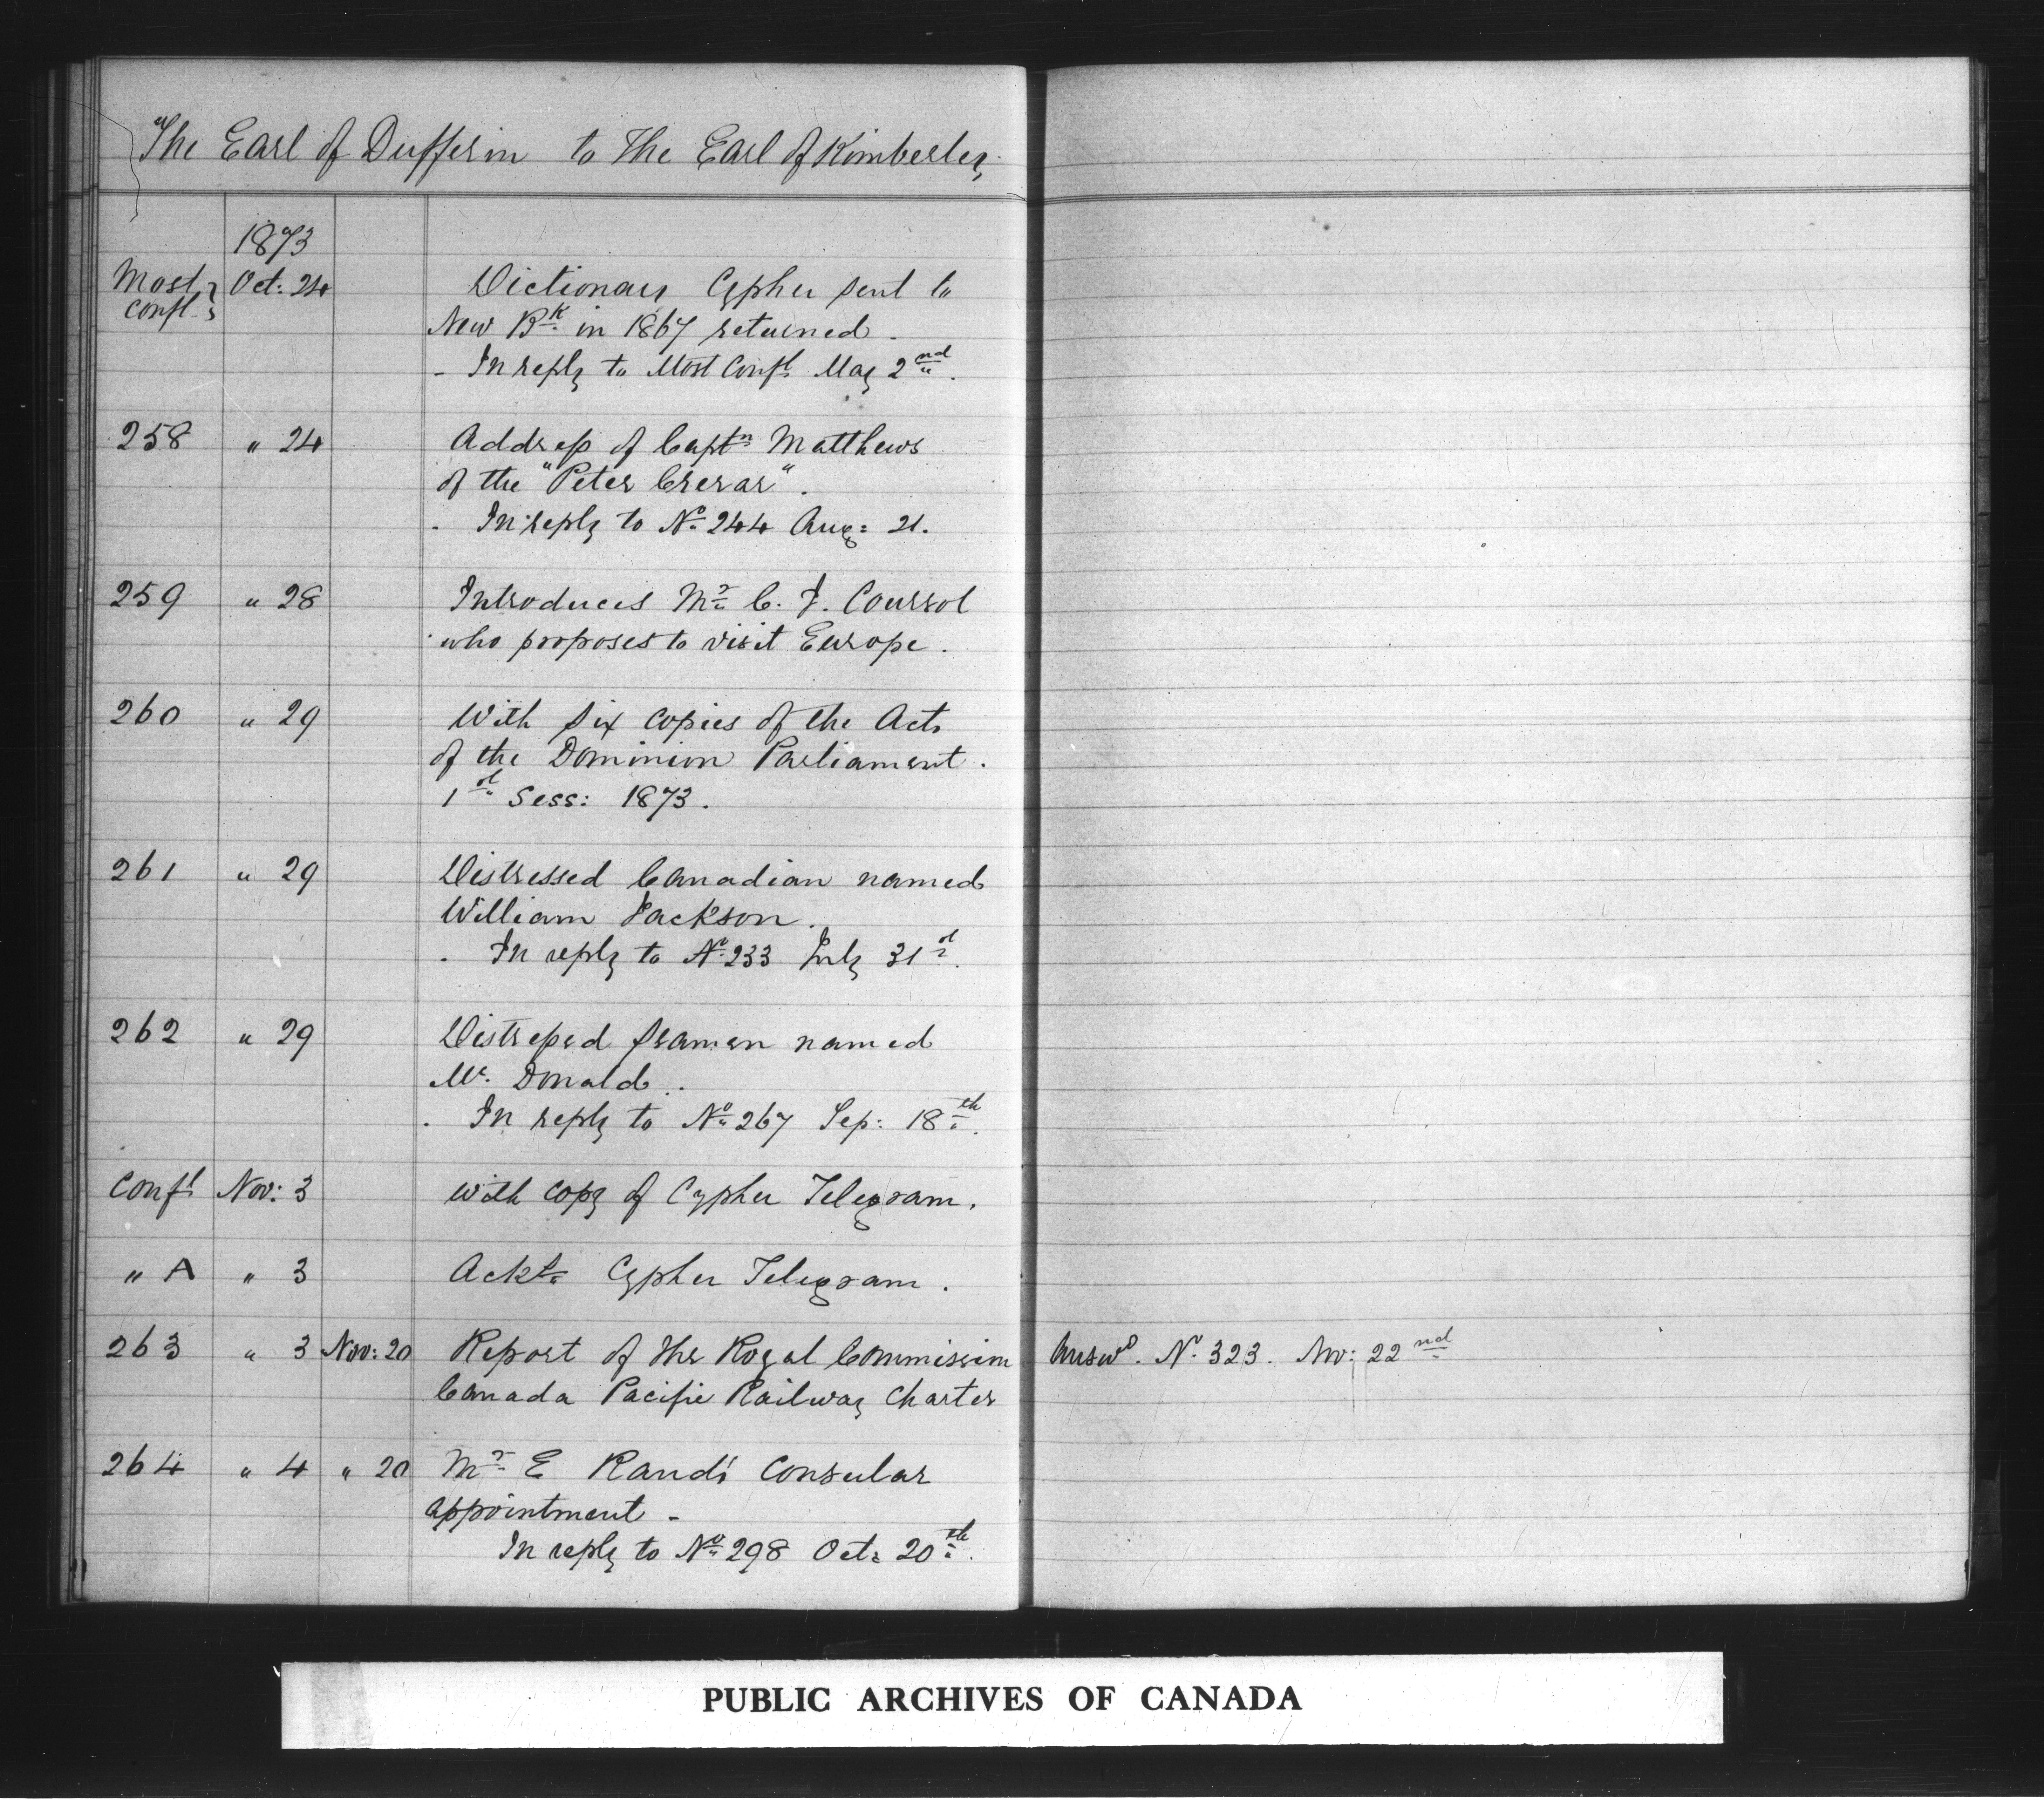 The Earl of Dufferin to The Earl of Kimberley
1873
Most Confl. Oct: 24 Dictionary Cypher sent to
New Bk. in 1867 returned.
- In reply to Most Confl. May 2nd.
258 " 24 Address of Captn Matthews
of the "Peter Crerar".
- In reply to No. 244 Aug: 21.
259 " 28 Introduces Mr. C. J. Coursol
who proposes to visit Europe.
260 " 29 With six copies of the Acts
of the Dominion Parliament.
1st Sess: 1873.
261 " 29 Distressed Canadian named
William Jackson.
- In reply to No. 233 July 31st.
262 " 29 Distressed seaman named
Mc. Donald.
- In reply to No. 267 Sep: 18th.
Confl Nov: 3 With copy of Cypher Telegram.
" A " 3 Ackt. Cypher Telegram.
263 " 3 Nov: 20 Report of the Royal Commission Answd. No. 323. Nov: 22nd
Canada Pacific Railway Charter
264 " 4 " 20 Mr. E Consular
appointment -
In reply to No. 298 Oct: 20th.
PUBLIC ARCHIVES OF CANADA